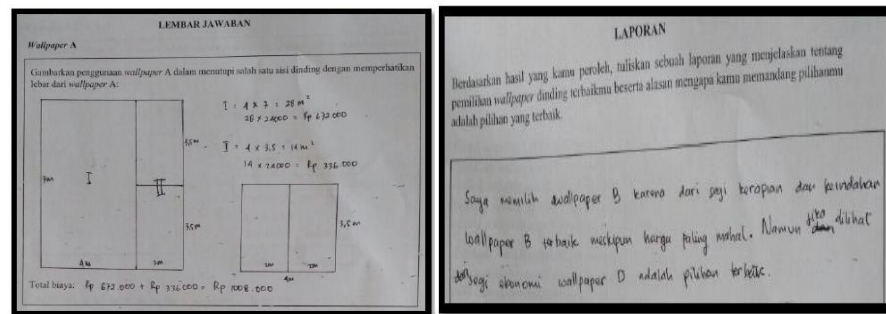 LEMBAR JAWABAN
Wallpaper A
Gambarkan penggunaan wallpaper A dalam menutupi salah satu sisi dinding dengan memperhatikan
lebar dari wallpaper A:
I : 4 x 7 : 28 m²
28 x 24000 = Rp 672.000
II = 4 x 3,5 = 14 m²
14 x 24000 = Rp 336.000
7m
I
II
3,5m
3,5m
4m
2m
3,5m
2m
2m
4m
Total biaya: Rp 672.000 + Rp 336.000 = Rp 1008.000
LAPORAN
Berdasarkan hasil yang kamu peroleh, tuliskan sebuah laporan yang menjelaskan tentang
pemilihan wallpaper dinding terbaikmu beserta alasan mengapa kamu memandang pilihanmu
adalah pilihan yang terbaik.
Saya memilih wallpaper B karena dari segi kerapian dan keindahan
wallpaper B terbaik meskipun harga paling mahal. Namun jika dilihat
dari segi ekonomi wallpaper D adalah pilihan terbaik.